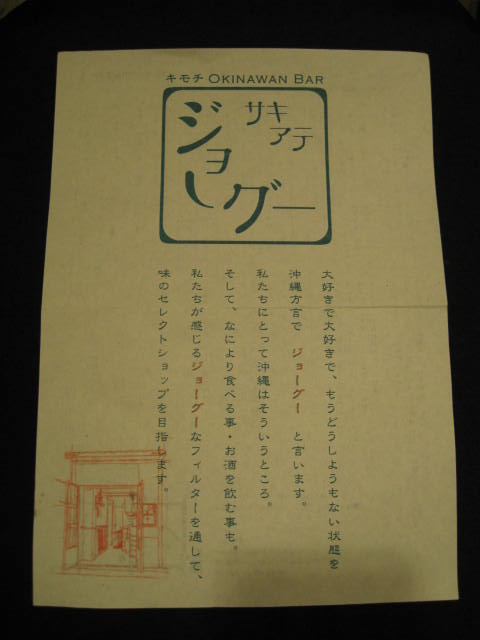 キモチ OKINAWAN BAR
サキ
アテ
ジョーグー
大好きで大好きで、もうどうしようもない状態を
沖縄方言で ジョーグー と言います。
私たちにとって沖縄はそういうところ。
そして、なにより食べる事・お酒を飲む事も。
私たちが感じるジョーグーなフィルターを通して、
味のセレクトショップを目指します。